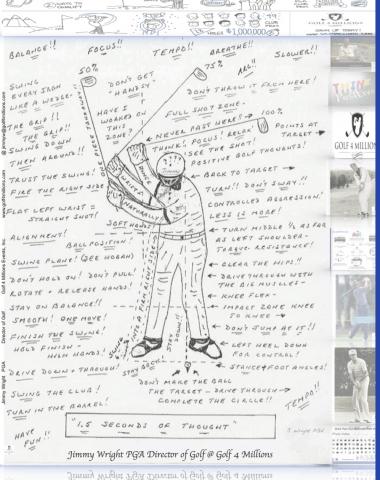 $1,000,000
GOLF 4 MILLIONS
BALANCE!! FOCUS!! TEMPO!! BREATHE!! SLOWER!!
50% 75% ARG!!
SWING
EVERY IRON
LIKE A WEDGE!
DON'T GET
HANDSY
DON'T THROW IT FROM HERE!
FULL SHOT ZONE
HAVE I
WORKED ON
THIS
ZONE?
THE GRIP!!
THE GRIP!!
SWING DOWN
THEN AROUND!!
NEVER PAST HERE! → 100%
THINK! FOCUS! RELAX!
POINTS AT
TARGET →
SEE THE SHOT!
POSITIVE GOLF THOUGHTS!
TRUST THE SWING!
FIRE THE RIGHT SIDE
BACK TO TARGET →
TURN!! DON'T SWAY!!
FLAT LEFT WRIST =
STRAIGHT SHOT!
NATURALLY
CONTROLLED AGGRESSION!
LESS IS MORE!
SOFT HANDS
ALIGNMENT!
TURN MIDDLE 1/2 AS FAR
AS LEFT SHOULDER-
TORQUE RESISTANCE!
BALL POSITION!
SWING PLANE! (SEE HOGAN)
CLEAR THE HIPS!!
DON'T HOLD ON! DON'T PULL!
ROTATE + RELEASE HANDS!
DRIVE THROUGH WITH
THE BIG MUSCLES-
KNEE FLEX-
STAY ON BALANCE!!
SMOOTH! ONE MOVE!
IMPACT ZONE KNEE
TO KNEE →
FINISH THE SWING!
DON'T JUMP AT IT!!
HOLD FINISH -
HIGH HANDS!
LEFT HEEL DOWN
FOR CONTROL!
DRIVE DOWN + THROUGH!
STANCE + FOOT ANGLES!
DON'T MAKE THE BALL
THE TARGET - DRIVE THROUGH
COMPLETE THE CIRCLE!!
SWING THE CLUB!
TURN IN THE BARREL!
TEMPO!!
HAVE
FUN!!
"1.5 SECONDS OF THOUGHT"
J. Wright PGA
Jimmy Wright PGA Director of Golf @ Golf 4 Millions
Jimmy Wright PGA Director of Golf Golf 4 Millions Events, Inc. www.golf4millions.com @ jimmy@golf4millions.com